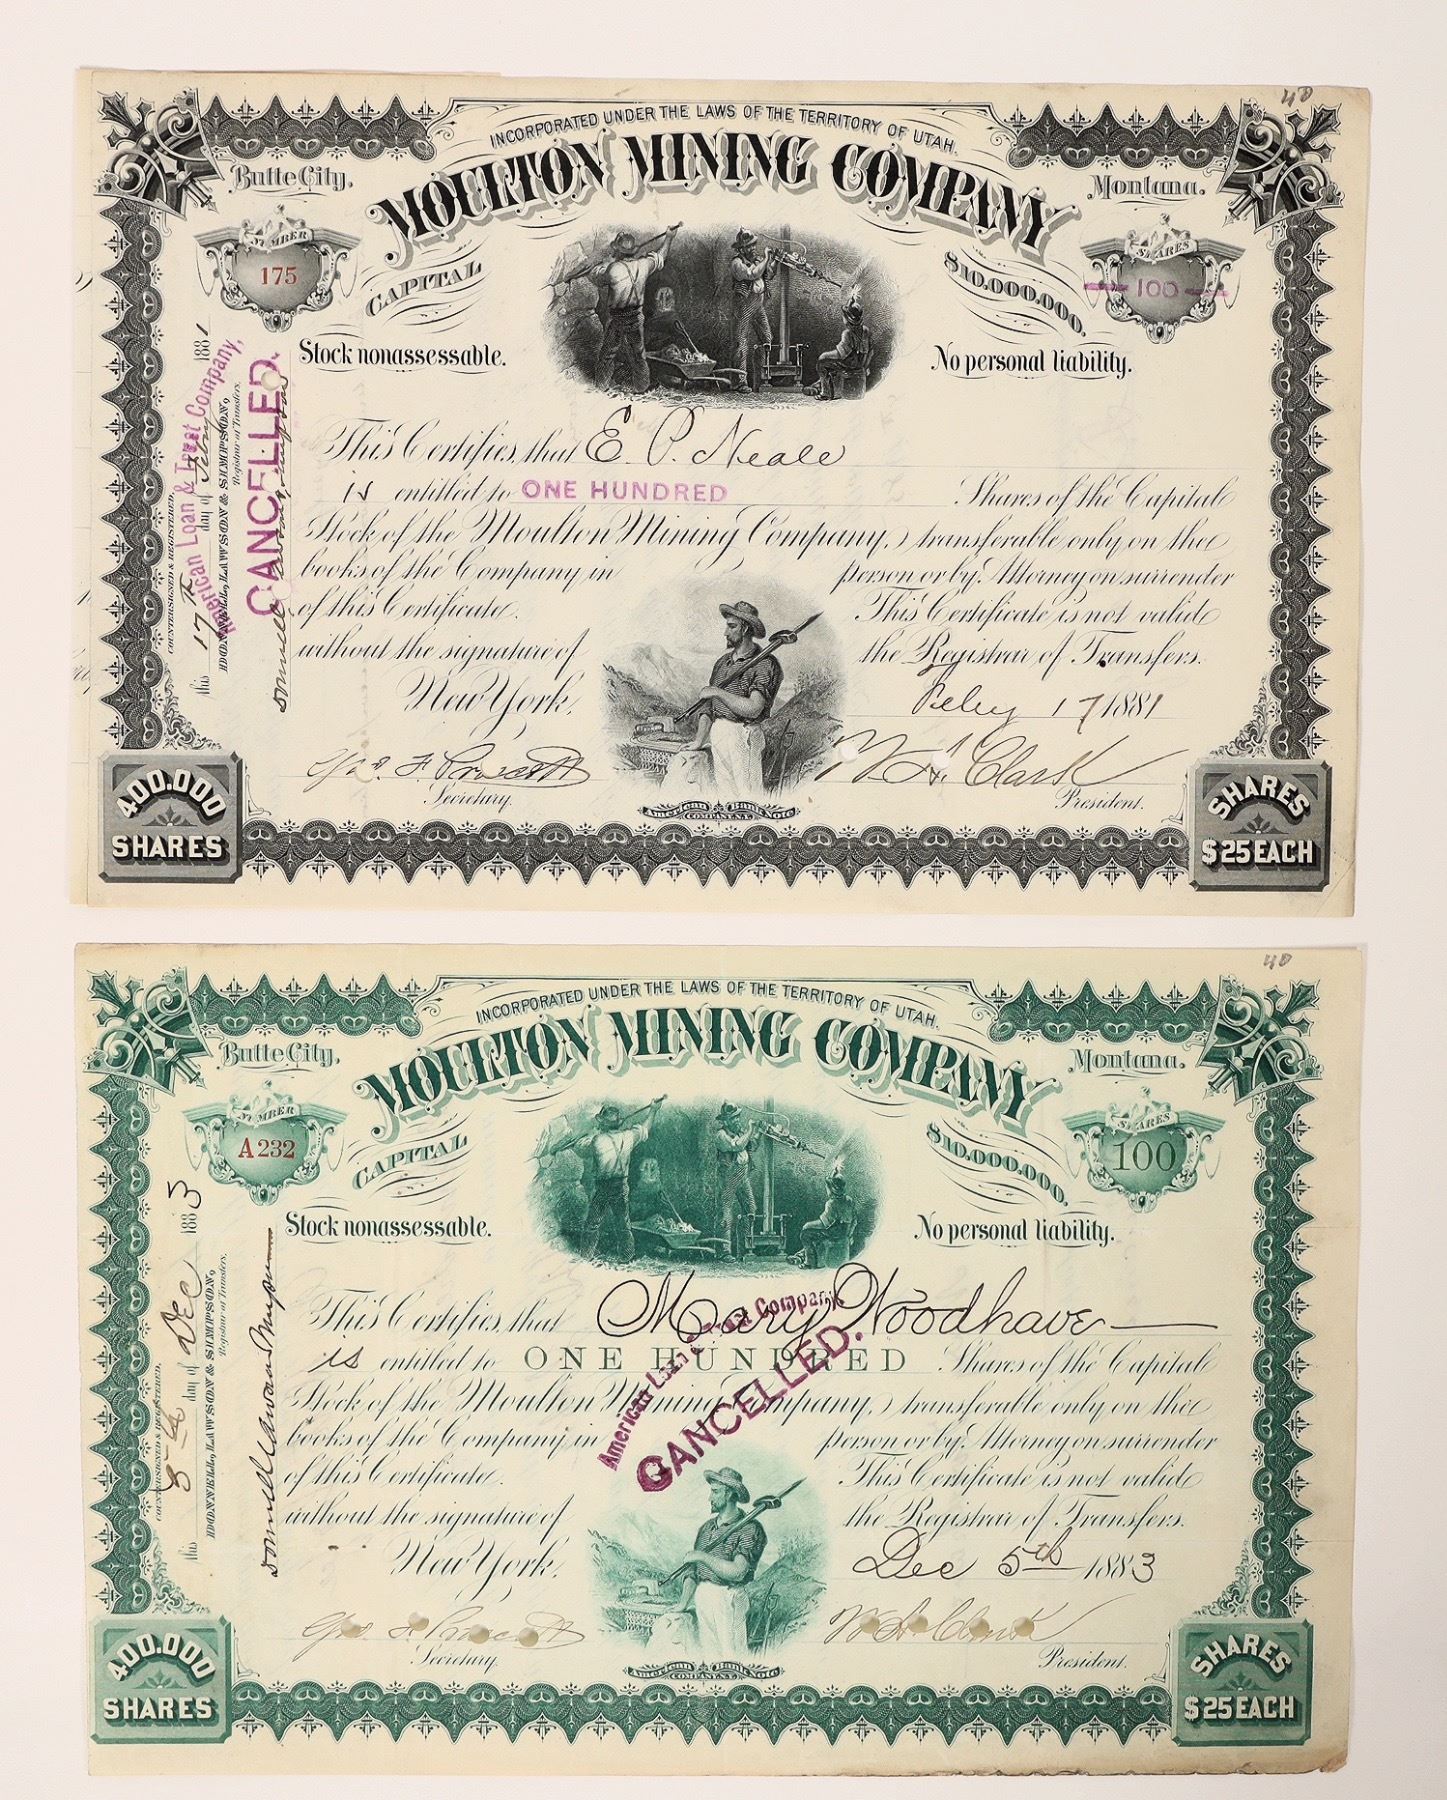 40
INCORPORATED UNDER THE LAWS OF THE TERRITORY OF UTAH.
Butte City,
MOULTON MINING COMPANY
Montana.
NUMBER
175
CAPITAL
$10,000,000.
SHARES
100
Stock nonassessable.
No personal liability.
This Certifies, that E. P. Neale
is entitled to ONE HUNDRED Shares of the Capital
Stock of the Moulton Mining Company, transferable only on the
books of the Company in person or by Attorney on surrender
of this Certificate. This Certificate is not valid
without the signature of the Registrar of Transfers.
New York, Feby 17 1881
Secretary.
W. A. Clark
President.
American Bank Note
COMPANY N.Y.
400.000
SHARES
SHARES
$25 EACH
COUNTERSIGNED & REGISTERED,
this 17th day of Feby 1881
DONNELL, LAWSON & SIMPSON,
Registrar of Transfers.
American Loan & Trust Company,
CANCELLED.
40
INCORPORATED UNDER THE LAWS OF THE TERRITORY OF UTAH.
Butte City,
MOULTON MINING COMPANY
Montana.
NUMBER
A232
CAPITAL
$10,000,000.
SHARES
100
Stock nonassessable.
No personal liability.
This Certifies, that Mary Woodhave
is entitled to ONE HUNDRED Shares of the Capital
Stock of the Moulton Mining Company, transferable only on the
books of the Company in person or by Attorney on surrender
of this Certificate. This Certificate is not valid
without the signature of the Registrar of Transfers.
New York, Dec 5th 1883
Secretary.
W. A. Clark
President.
American Bank Note
COMPANY N.Y.
400.000
SHARES
SHARES
$25 EACH
COUNTERSIGNED & REGISTERED,
this 8th day of Dec 1883
DONNELL, LAWSON & SIMPSON,
Registrar of Transfers.
Donnell Lawson & Simpson
American Loan & Trust Company
CANCELLED.